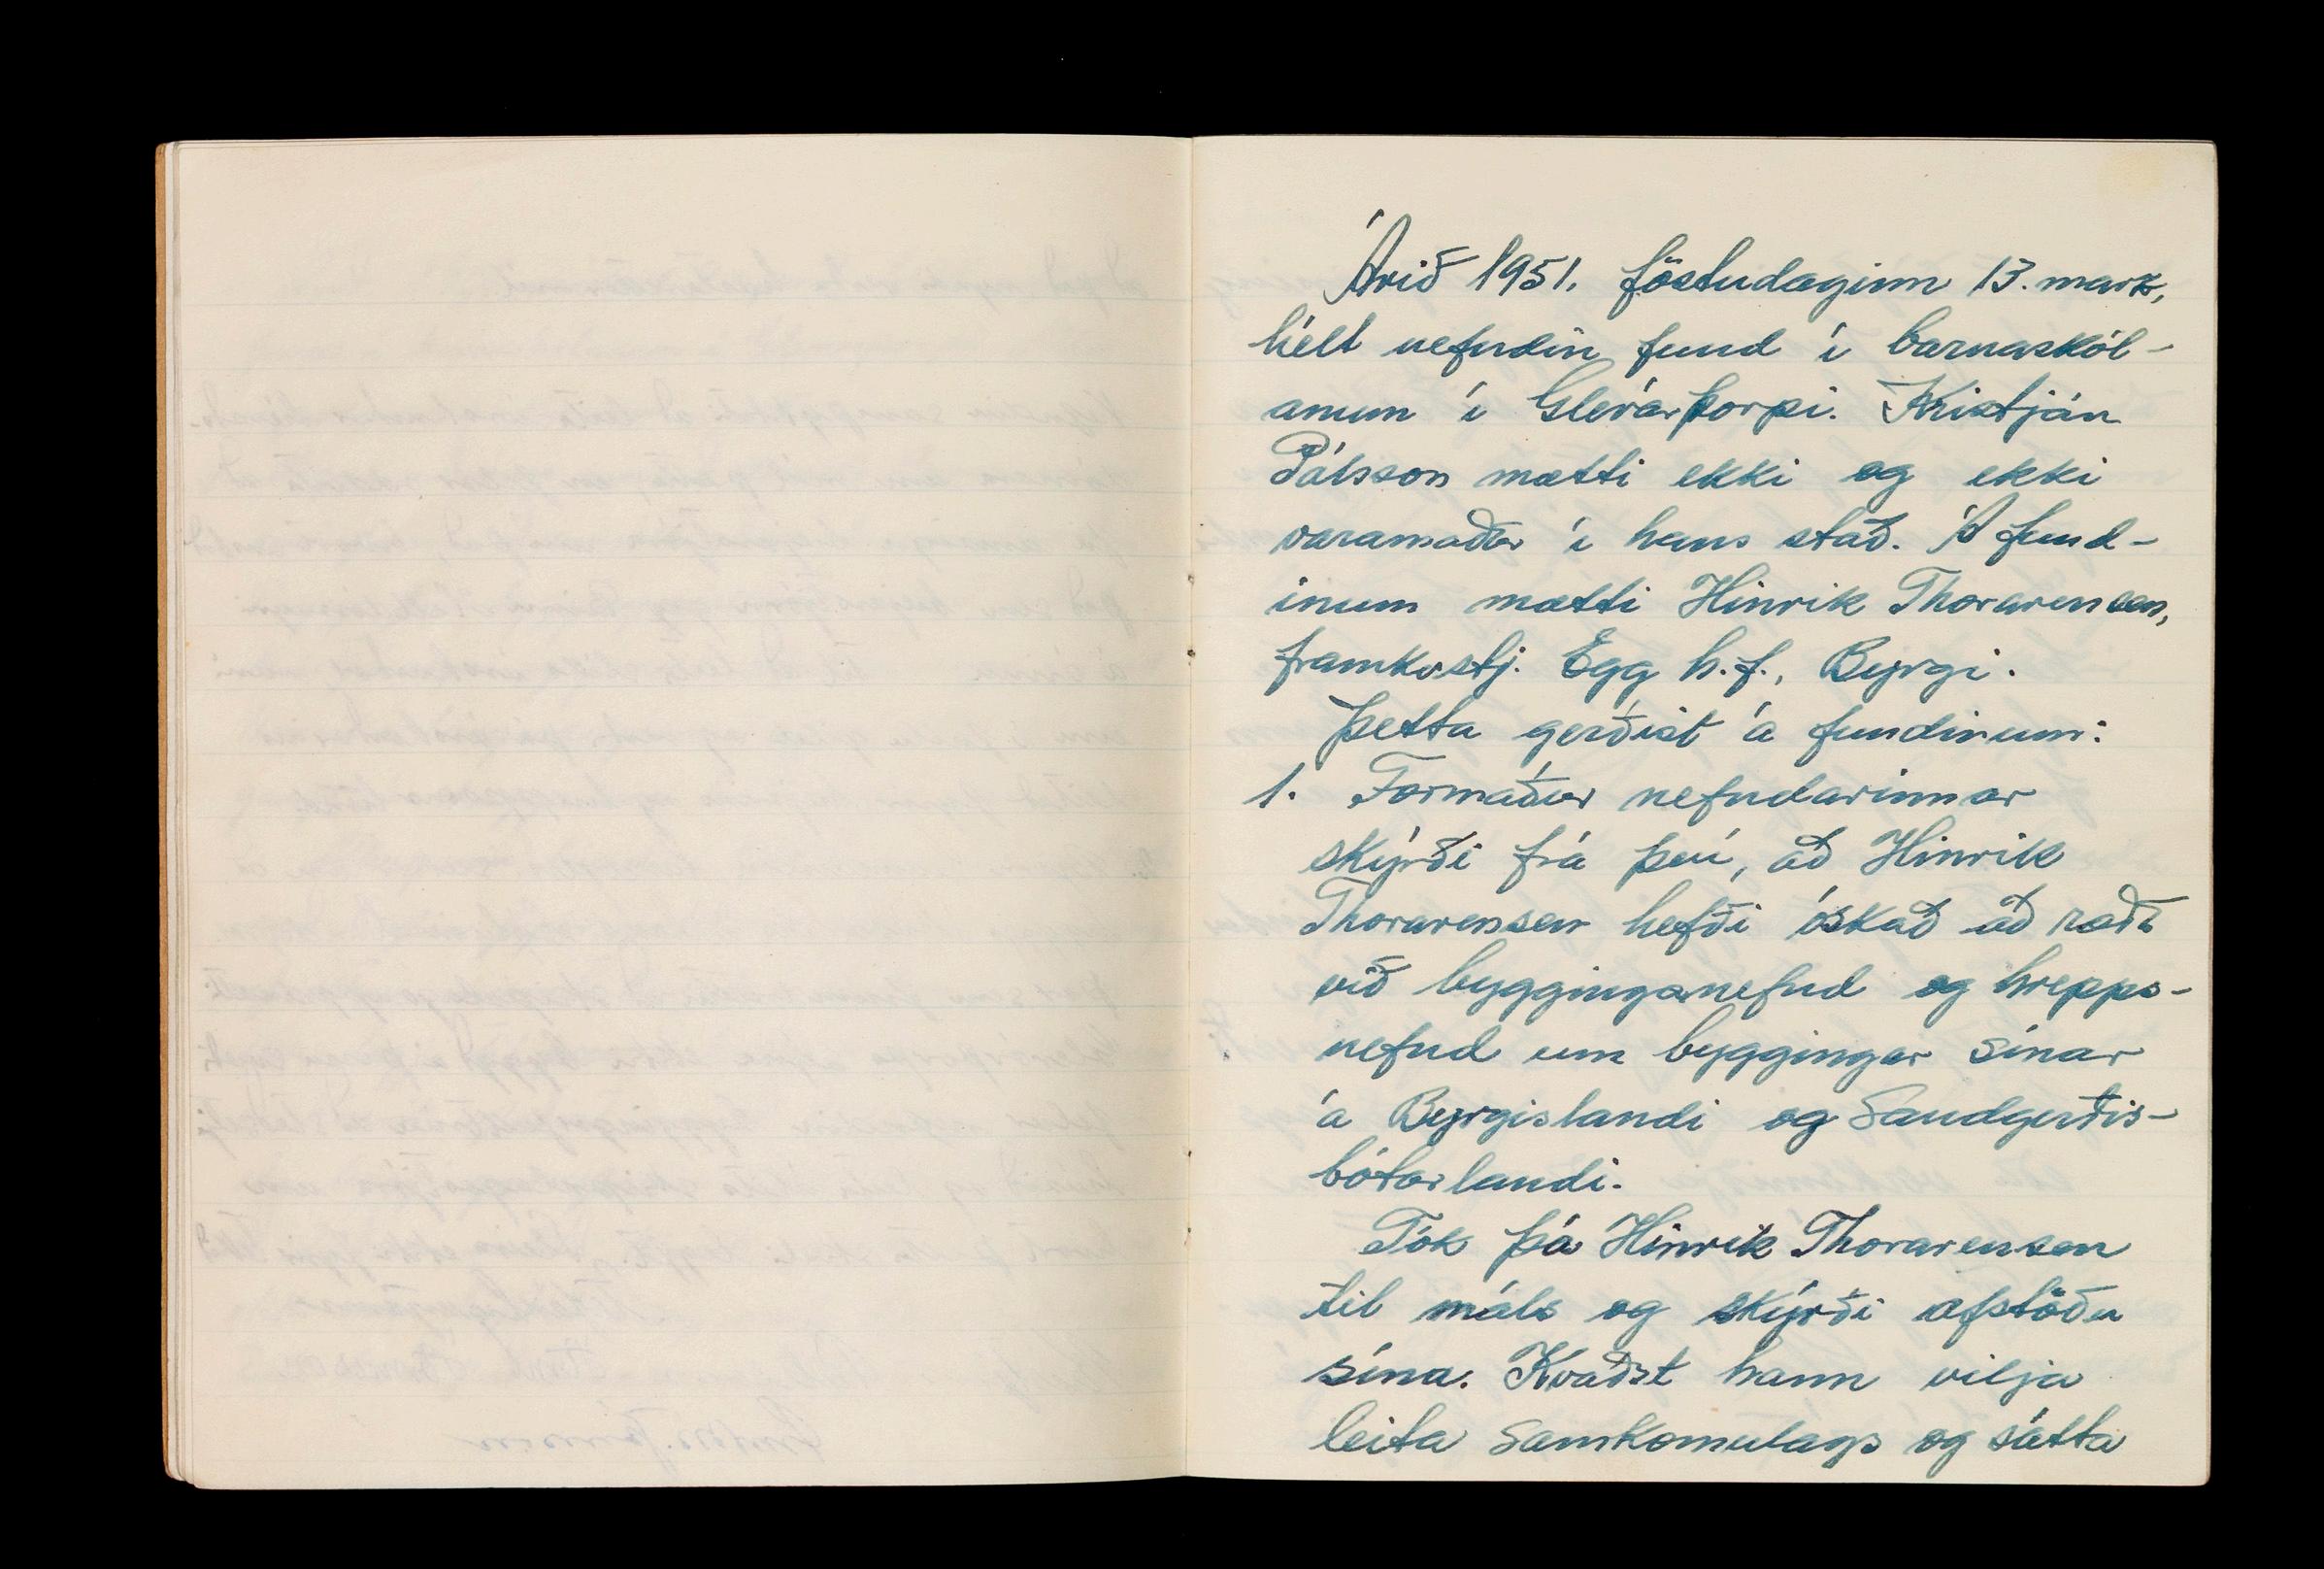 Árið 1951. föstudaginn 13. marz,
hélt nefndin fund í barnaskól-
anum í Glerárþorpi. Kristján
Pálsson mætti ekki og ekki
varamaður í hans stað. Á fund-
inum mætti Hinrik Thorarensen,
framkvstj. Egg h.f., Byrgi.
Þetta gerðist á fundinum:
1. Formaður nefndarinnar
skýrði frá því, að Hinrik
Thorarensen hefði óskað að ræða
við bygginganefnd og hrepps-
nefnd um byggingar sínar
á Byrgislandi og Sandgerðis-
bótarlandi.
Tók þá Hinrik Thorarensen
til máls og skýrði afstöðu
sína. Kvaðst hann vilja
leita samkomulags og sátta